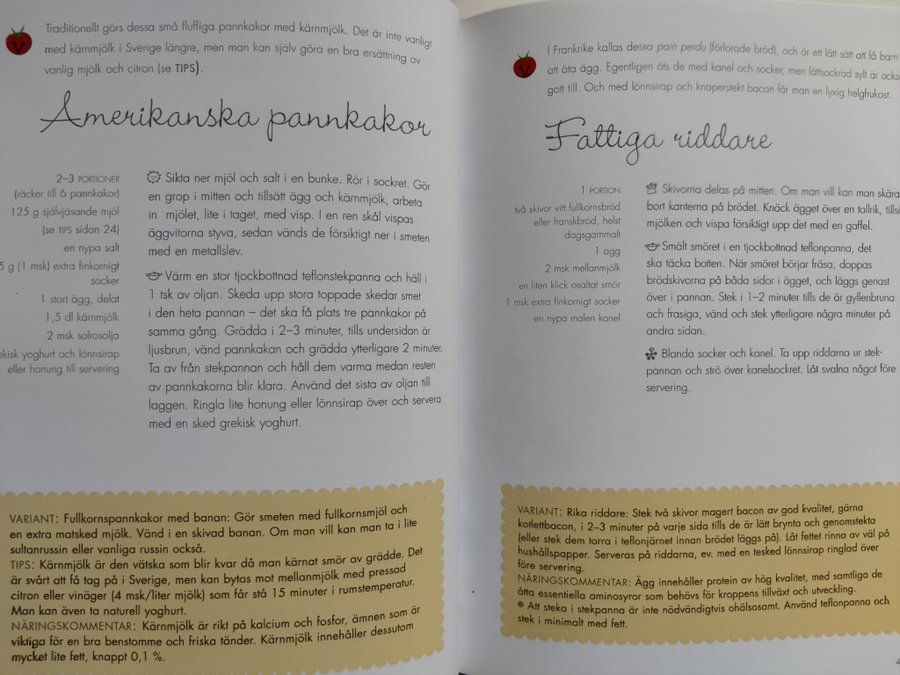 Traditionellt görs dessa små fluffiga pannkakor med kärnmjölk. Det är inte vanligt
med kärnmjölk i Sverige längre, men man kan själv göra en bra ersättning av
vanlig mjölk och citron (se TIPS).
Amerikanska pannkakor
2–3 PORTIONER
(räcker till 6 pannkakor)
125 g självjäsande mjöl
(se TIPS sidan 24)
en nypa salt
5 g (1 msk) extra finkornigt
socker
1 stort ägg, delat
1,5 dl kärnmjölk
2 msk solrosolja
ekisk yoghurt och lönnsirap
eller honung till servering
Sikta ner mjöl och salt i en bunke. Rör i sockret. Gör
en grop i mitten och tillsätt ägg och kärnmjölk, arbeta
in mjölet, lite i taget, med visp. I en ren skål vispas
äggvitorna styva, sedan vänds de försiktigt ner i smeten
med en metallslev.
Värm en stor tjockbottnad teflonstekpanna och häll i
1 tsk av oljan. Skeda upp stora toppade skedar smet
i den heta pannan – det ska få plats tre pannkakor på
samma gång. Grädda i 2–3 minuter, tills undersidan är
ljusbrun, vänd pannkakan och grädda ytterligare 2 minuter.
Ta av från stekpannan och håll dem varma medan resten
av pannkakorna blir klara. Använd det sista av oljan till
laggen. Ringla lite honung eller lönnsirap över och servera
med en sked grekisk yoghurt.
VARIANT: Fullkornspannkakor med banan: Gör smeten med fullkornsmjöl och
en extra matsked mjölk. Vänd i en skivad banan. Om man vill kan man ta i lite
sultanrussin eller vanliga russin också.
TIPS: Kärnmjölk är den vätska som blir kvar då man kärnat smör av grädde. Det
är svårt att få tag på i Sverige, men kan bytas mot mellanmjölk med pressad
citron eller vinäger (4 msk/liter mjölk) som får stå 15 minuter i rumstemperatur.
Man kan även ta naturell yoghurt.
NÄRINGSKOMMENTAR: Kärnmjölk är rikt på kalcium och fosfor, ämnen som är
viktiga för en bra benstomme och friska tänder. Kärnmjölk innehåller dessutom
mycket lite fett, knappt 0,1 %.
I Frankrike kallas dessa pain perdu (förlorade bröd), och är ett lätt sätt att få barn
att äta ägg. Egentligen äts de med kanel och socker, men lättsockrad sylt är ocks
gott till. Och med lönnsirap och knaperstekt bacon får man en lyxig helgfrukost.
Fattiga riddare
1 PORTION
två skivor vitt fullkornsbröd
eller franskbröd, helst
dagsgammalt
1 ägg
2 msk mellanmjölk
en liten klick osaltat smör
1 msk extra finkornigt socker
en nypa malen kanel
Skivorna delas på mitten. Om man vill kan man skära
bort kanterna på brödet. Knäck ägget över en tallrik, tills
mjölken och vispa försiktigt upp det med en gaffel.
Smält smöret i en tjockbottnad teflonpanna, det
ska täcka botten. När smöret börjar fräsa, doppas
brödskivorna på båda sidor i ägget, och läggs genast
över i pannan. Stek i 1–2 minuter tills de är gyllenbruna
och frasiga, vänd och stek ytterligare några minuter på
andra sidan.
Blanda socker och kanel. Ta upp riddarna ur stek-
pannan och strö över kanelsockret. Låt svalna något före
servering.
VARIANT: Rika riddare: Stek två skivor magert bacon av god kvalitet, gärna
kotlettbacon, i 2–3 minuter på varje sida tills de är lätt brynta och genomstekta
(eller stek dem torra i teflonjärnet innan brödet läggs på). Låt fettet rinna av väl på
hushållspapper. Serveras på riddarna, ev. med en tesked lönnsirap ringlad över
före servering.
NÄRINGSKOMMENTAR: Ägg innehåller protein av hög kvalitet, med samtliga de
åtta essentiella aminosyror som behövs för kroppens tillväxt och utveckling.
• Att steka i stekpanna är inte nödvändigtvis ohälsosamt. Använd teflonpanna och
stek i minimalt med fett.